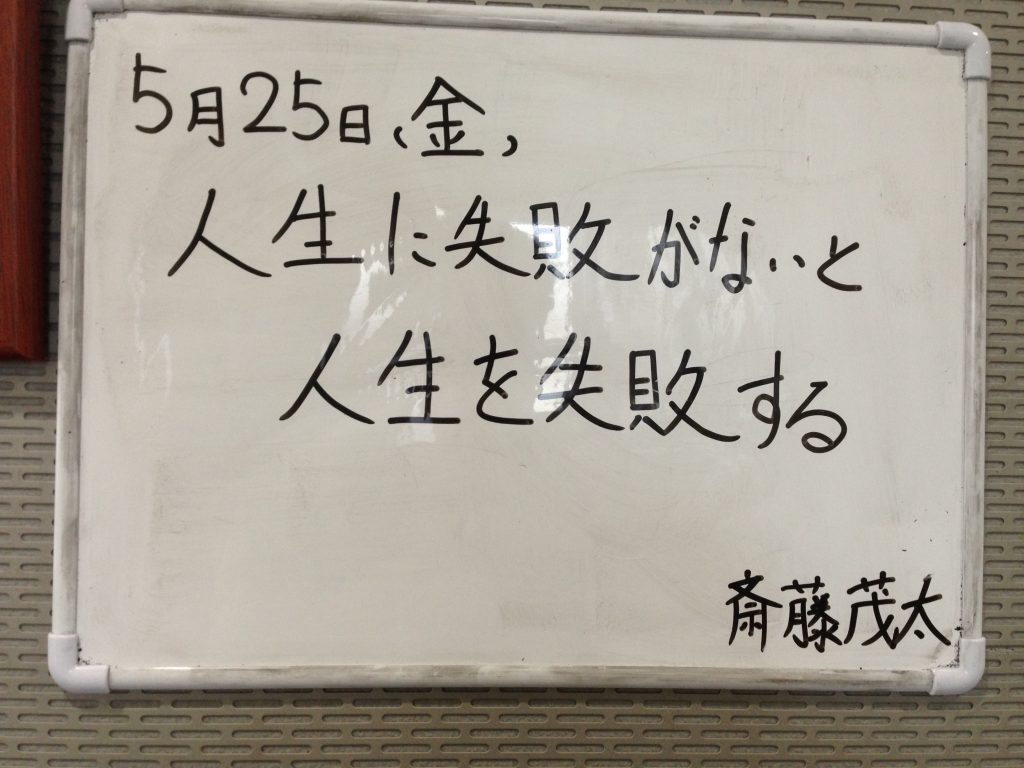 5月25日(金)
人生に失敗がないと
人生を失敗する
斎藤茂太